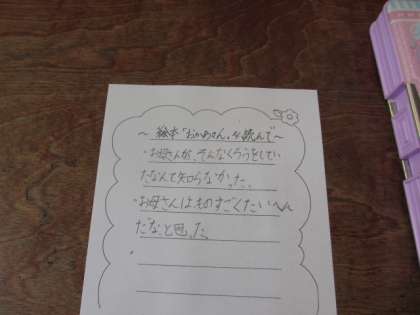 ～ 絵本「おかあさん」を読んで～
・お母さんが、そんなくろうをしてい
たなんて知らなかった。
・お母さんはものすごくたいへん
だなと思った。
・